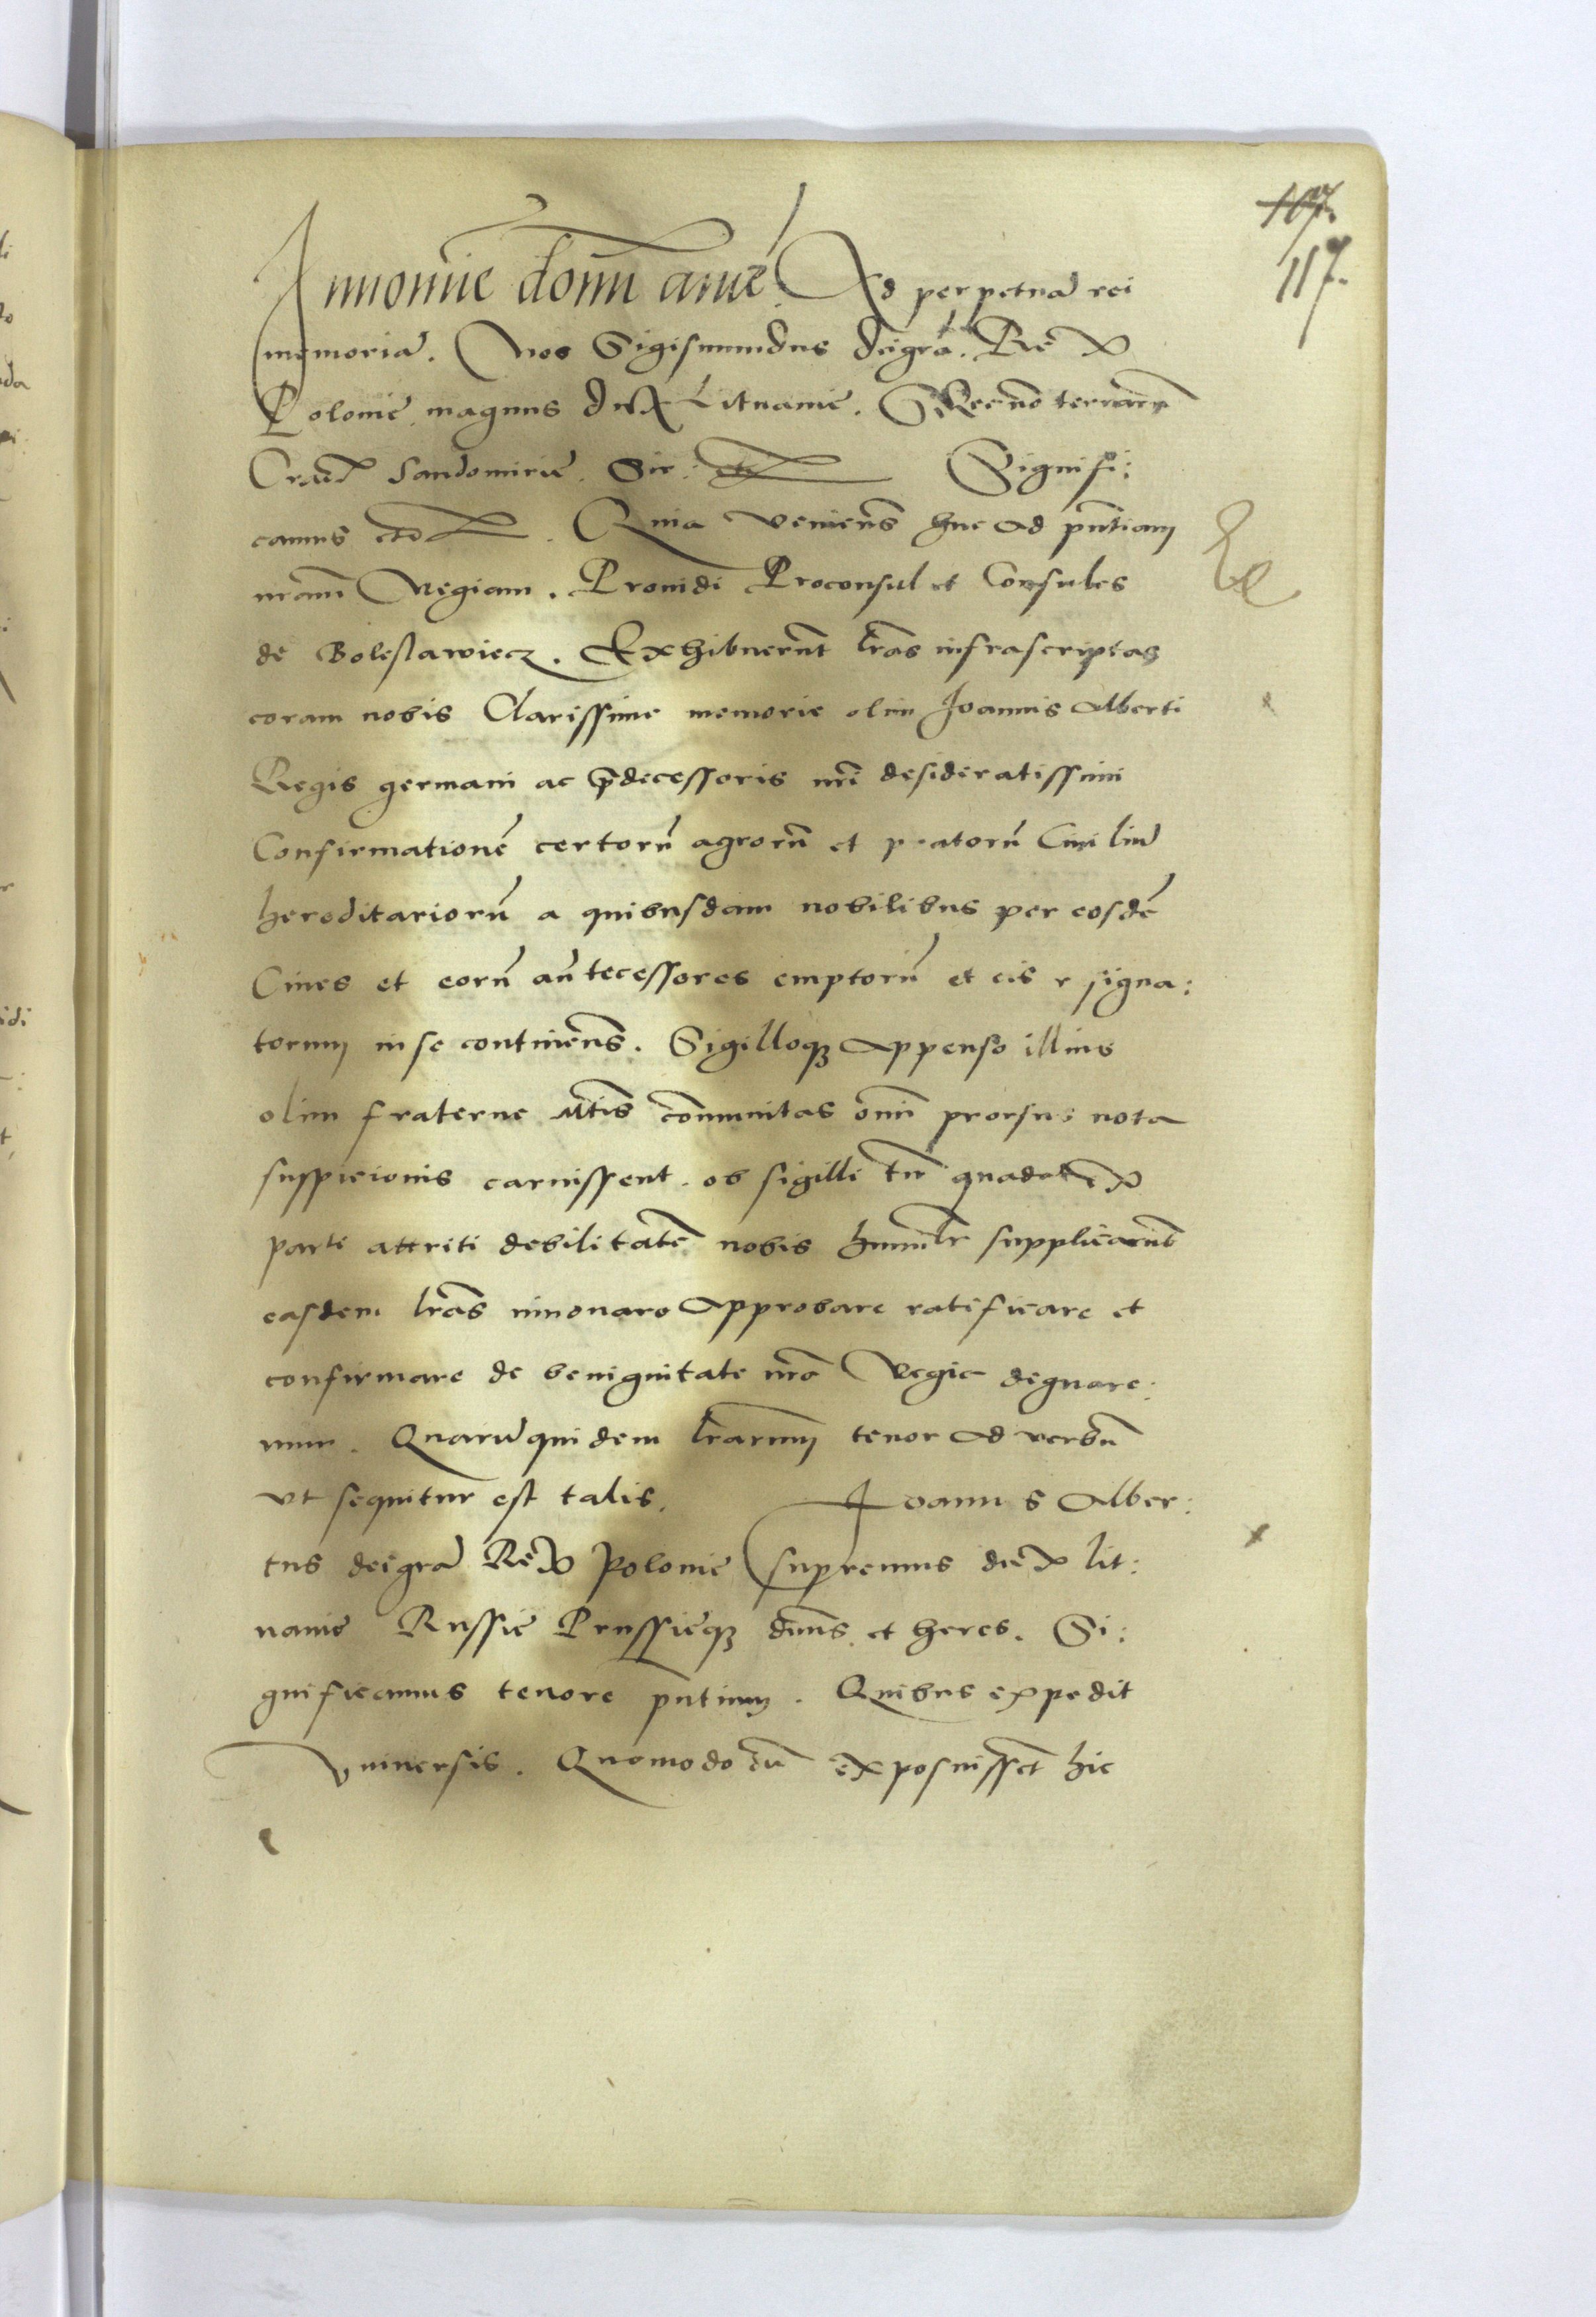 107.
117.
Innomie domi ame. Ad perpetuā rei
memoriā. Nos Sigismundus deigrā. Rex
Polonie magnus dux Lituanie. Necnō terrarum
Cracō Sandomirie. Sir: etc Signifi:
camus etc. Quia veniens huc ad pntiam
nram Regiam. Prouidi Proconsul et Consules
de Boleslawiecz. Exhibuerunt lras infrascriptas
coram nobis Clarissime memorie olim Joannis Alberti
Regis germani ac pdecessoris nri desideratissimi
Confirmationē certorū agrorū et pratorū Ciuiliū
hereditariorū a quibusdam nobilibus per eosdē
Ciues et eorū antecessores emptorū et eis r signa:
torum inse continens. Sigilloqz Appenso illius
olim fraterne Mtis communitas omni prorsus nota
suspicionis caruissent. ob sigilli tn quadā ex
parte attriti debilitatē nobis humilr supplicarunt
easdem lras innouare Approbare ratificare et
confirmare de benignitate nra Regie dignare:
mur. Quarū quidem lrarum tenor ad verbū
vt sequitur est talis. Joannes Alber:
tus deigrā Rex Polonie supremus dux lit:
uanie Russie Prussieqz dnus et heres. Si:
gnificamus tenore pntium. Quibus expedit
vniuersis. Quomodo cū exposuisset hic